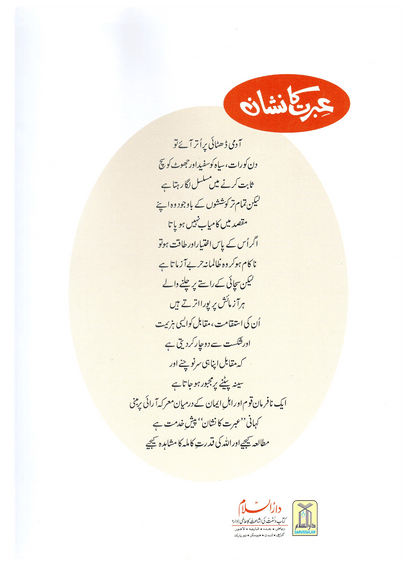 عبرت کا نشان
آدمی ڈھٹائی پر اُتر آئے تو
دن کو رات، سیاہ کو سفید اور جھوٹ کو سچ
ثابت کرنے میں مسلسل لگا رہتا ہے
لیکن تمام تر کوششوں کے باوجود وہ اپنے
مقصد میں کامیاب نہیں ہو پاتا
اگر اُس کے پاس اختیار اور طاقت ہو تو
ناکام ہو کر وہ ظالمانہ حربے آزماتا ہے
لیکن سچائی کے راستے پر چلنے والے
ہر آزمائش پر پورا اترتے ہیں
اُن کی استقامت، مقابل کو ایسی ہزیمت
اور شکست سے دوچار کر دیتی ہے
کہ مقابل اپنا ہی سر نوچنے اور
سینہ پیٹنے پر مجبور ہو جاتا ہے
ایک نافرمان قوم اور اہلِ ایمان کے درمیان معرکہ آرائی پر مبنی
کہانی ''عبرت کا نشان'' پیشِ خدمت ہے
مطالعہ کیجیے اور اللہ کی قدرتِ کاملہ کا مشاہدہ کیجیے
دارالسلام
کتاب و سنت کی اشاعت کا عالمی ادارہ
دارالسلام
DARUSSALAM